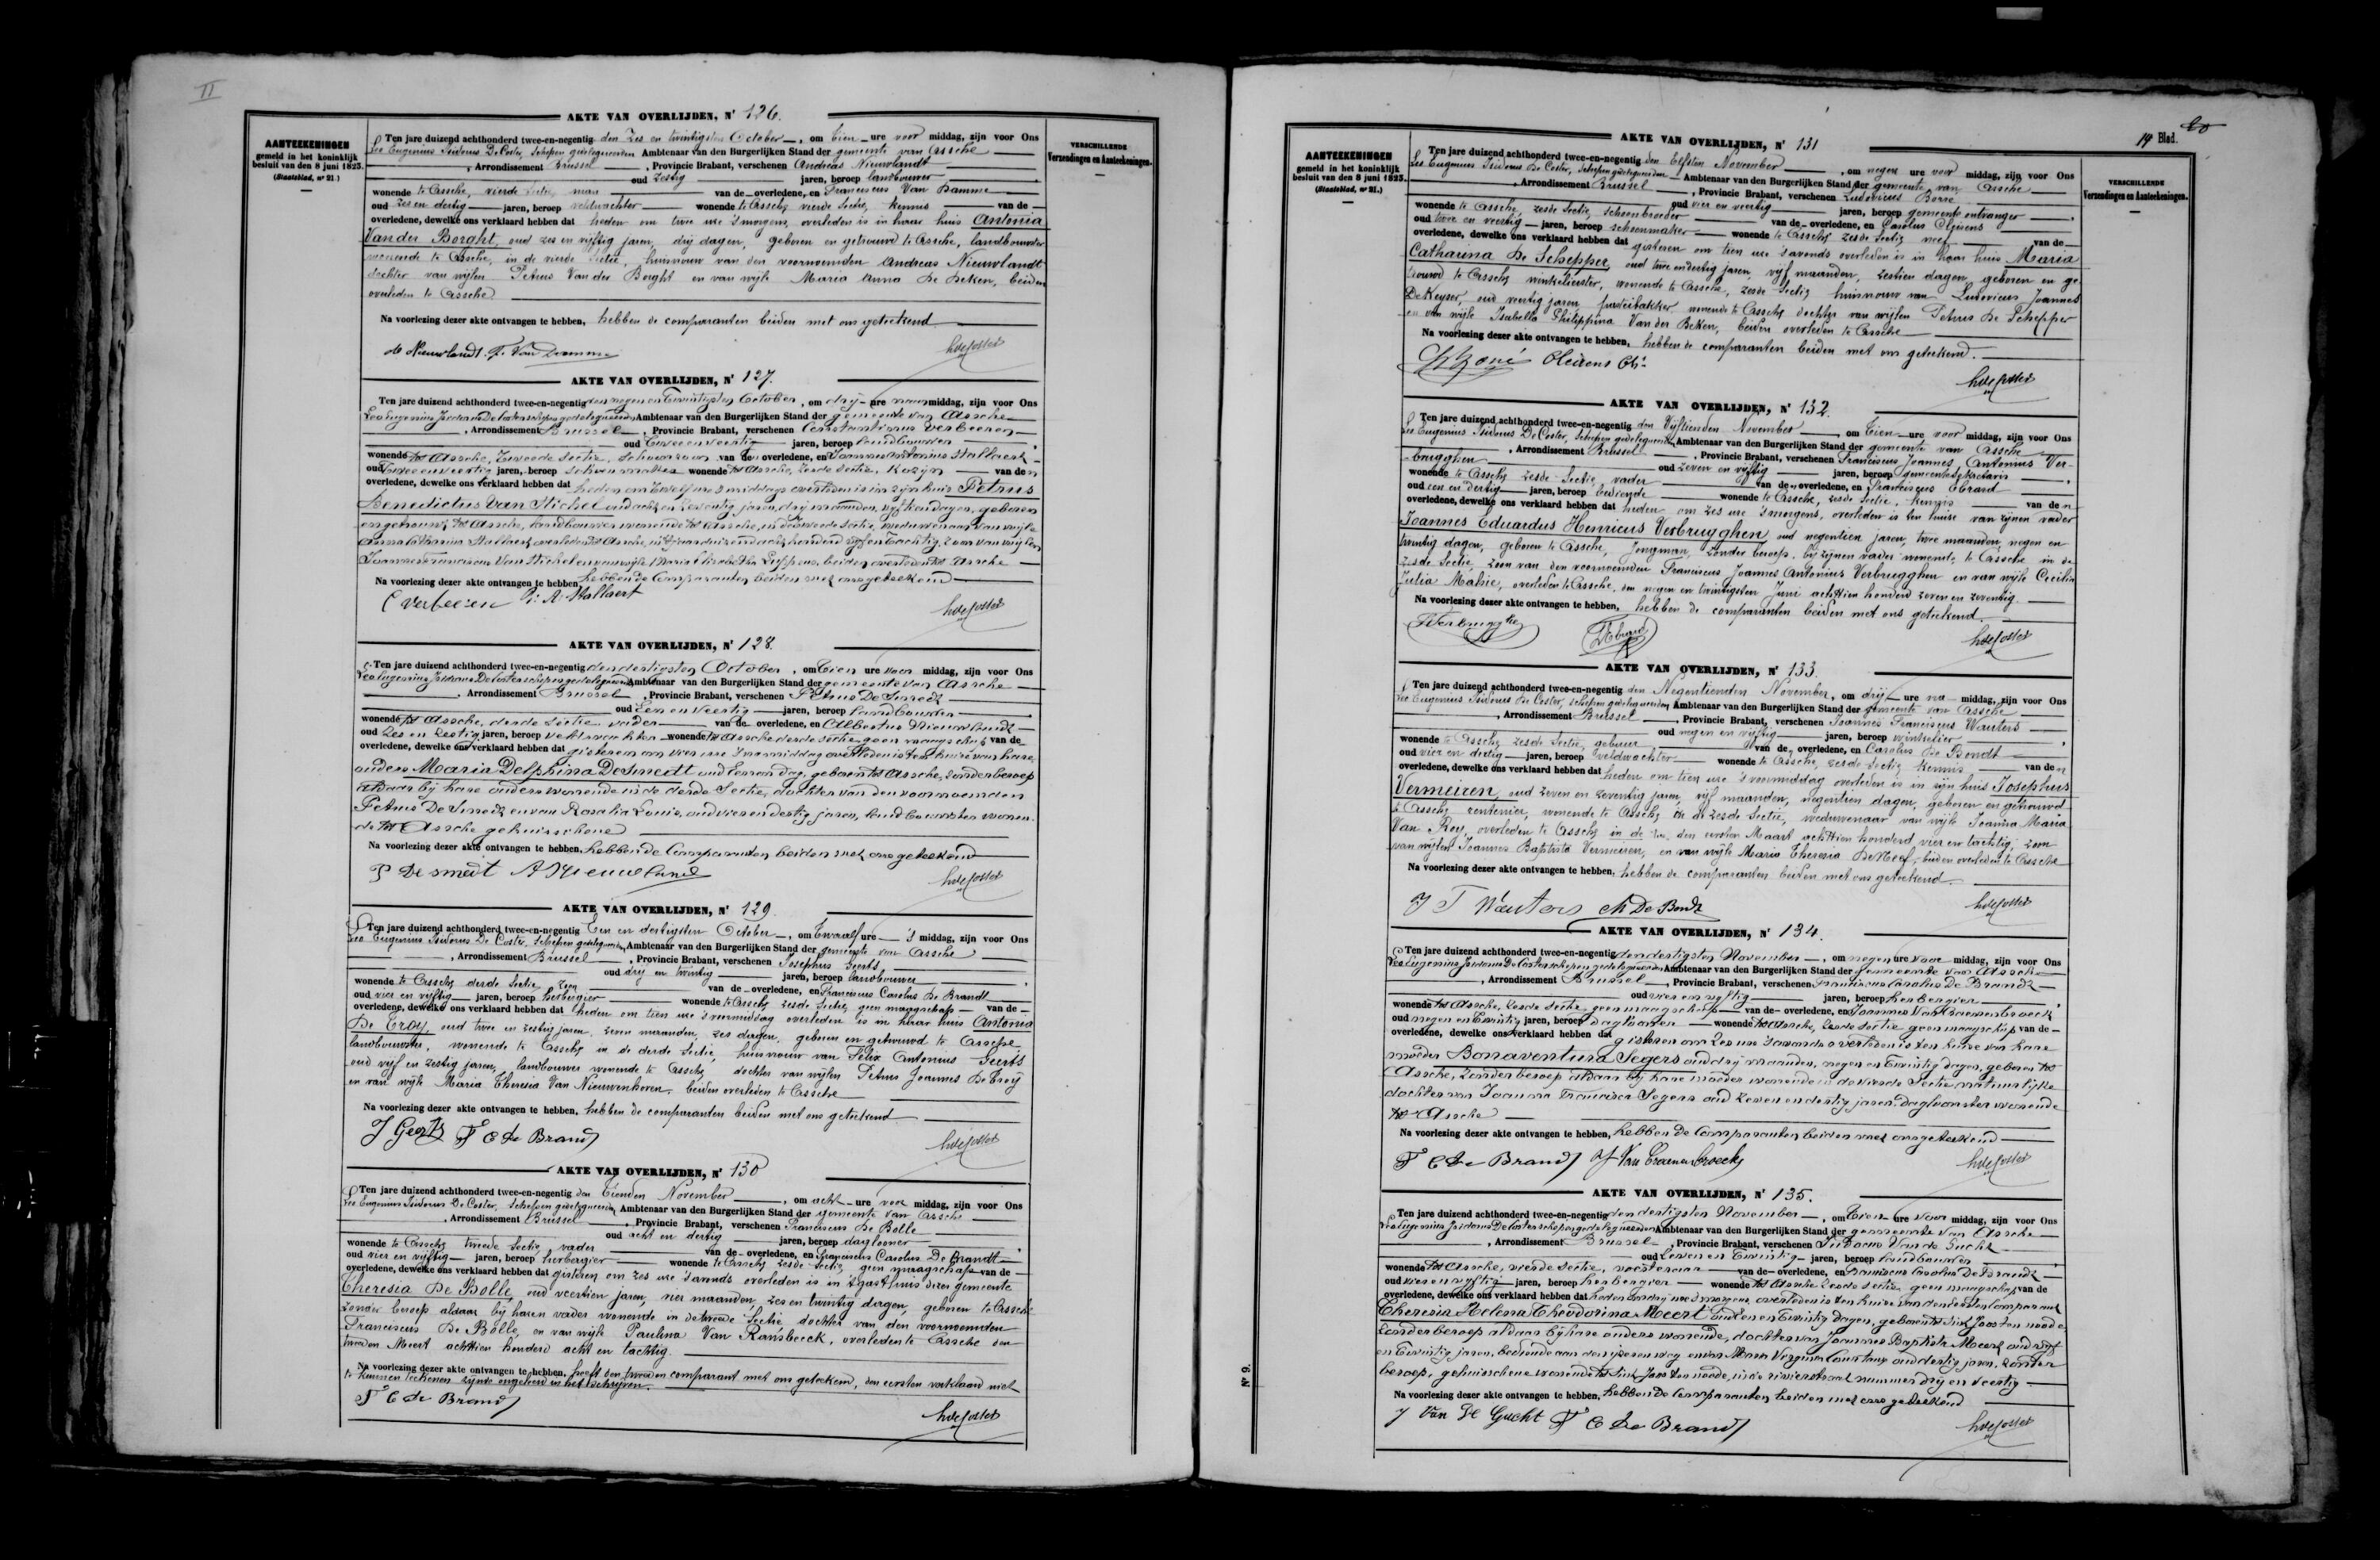 II
AKTE VAN OVERLIJDEN, Nr 126.
AANTEEKENINGEN
gemeld in het koninklijk
besluit van den 8 juni 1823.
(Staatsblad, nr 21)
VERSCHILLENDE
Verzendingen en Aanteekeningen.
Ten jare duizend achthonderd twee-en-negentig den Zes en twintigsten October, om tien ure voor middag, zijn voor Ons
Leo Eugenius Isidorus De Coster, Schepen gedelegueerden Ambtenaar van den Burgerlijken Stand der gemeente van Assche
, Arrondissement Brussel, Provincie Brabant, verschenen Andreas Nieuwlandt
oud zestig jaren, beroep landbouwer
wonende te Assche, vierde sectie, man van de overledene, en Franciscus Van Damme
oud zes en dertig jaren, beroep veldwachter wonende te Assche, vierde sectie, kennis van de
overledene, dewelke ons verklaard hebben dat heden om twee ure 's morgens, overleden is in haar huis Antonia
Van der Borght, oud zes en vijftig jaren, drij dagen, geboren en getrouwd te Assche, landbouwster
wonende te Assche, in de vierde sectie, huisvrouw van den voornoemden Andreas Nieuwlandt
dochter van wijlen Petrus Van der Borght en van wijle Maria Anna De Deken, beiden
overleden te Assche
Na voorlezing dezer akte ontvangen te hebben, hebben de comparanten beiden met ons geteekend.
A Nieuwlandt. F. Van Damme
AKTE VAN OVERLIJDEN, Nr 127.
Ten jare duizend achthonderd twee-en-negentig den negen en twintigsten October, om drij ure namiddag, zijn voor Ons
Leo Eugenius Isidorus De Coster schepen gedelegueerden Ambtenaar van den Burgerlijken Stand der gemeente van Assche
, Arrondissement Brussel, Provincie Brabant, verschenen Constantinus Verbeeren
oud twee en veertig jaren, beroep landbouwer
wonende te Assche, tweede sectie, schoonzoon van den overledene, en Joannes Antonius Stallaert
oud twee en veertig jaren, beroep schoenmaker wonende te Assche, zesde sectie, kozijn van den
overledene, dewelke ons verklaard hebben dat heden om twelf ure 's middags overleden is in zijn huis Petrus
Benedictus Van Stichel oud acht en zeventig jaren, drij maanden, vijftien dagen, geboren
en getrouwd te Assche, landbouwer wonende te Assche, in de tweede sectie, weduwenaar van wijle
Stallaert overleden te Assche, in 't jaar duizend acht honderd vijf en tachtig, zoon van wijlen
Joannes Franciscus Van Stichel en van wijle Maria Elisabeth Luppens, beiden overleden te Assche
Na voorlezing dezer akte ontvangen te hebben, hebben de comparanten beiden met ons geteekend
C Verbeeren J: A: Stallaert
AKTE VAN OVERLIJDEN, Nr 128.
Ten jare duizend achthonderd twee-en-negentig den dertigsten October, om tien ure voor middag, zijn voor Ons
Leo Eugenius Isidorus De Coster schepen gedelegueerden Ambtenaar van den Burgerlijken Stand der gemeente van Assche
, Arrondissement Brussel, Provincie Brabant, verschenen Petrus De Smedt
oud een en veertig jaren, beroep landbouwer
wonende te Assche, derde sectie vader van de overledene, en Albertus Nieuwlandt
oud zes en zestig jaren, beroep veldwachter wonende te Assche derde sectie geen maagschap van de
overledene, dewelke ons verklaard hebben dat gisteren om vier ure 's namiddag overleden is ten huize van hare
ouders Maria Delphina De Smedt oud eenen dag, geboren te Assche, zonder beroep
aldaar bij hare ouders wonende in de derde sectie, dochter van den voornoemden
Petrus De Smedt en van Rosalia Louis, oud vier en dertig jaren, landbouwster wonen-
de te Assche gehuisschene
Na voorlezing dezer akte ontvangen te hebben, hebben de comparanten beiden met ons geteekend
P De Smedt A Nieuwlandt
AKTE VAN OVERLIJDEN, Nr 129
Ten jare duizend achthonderd twee-en-negentig Een en dertigsten October, om twaalf ure 's middag, zijn voor Ons
Leo Eugenius Isidorus De Coster, Schepen gedelegueerden Ambtenaar van den Burgerlijken Stand der gemeente van Assche
, Arrondissement Brussel, Provincie Brabant, verschenen Josephus Geerts
oud drij en twintig jaren, beroep landbouwer
wonende te Assche derde sectie zoon van de overledene, en Franciscus Carolus De Brandt
oud vier en vijftig jaren, beroep herbergier wonende te Assche, zesde sectie, geen maagschap van de
overledene, dewelke ons verklaard hebben dat heden om tien ure 's voormiddag overleden is in haar huis Antonia
De Troy, oud twee en zestig jaren, zeven maanden, zes dagen, geboren en getrouwd te Assche
landbouwster, wonende te Assche in de derde sectie, huisvrouw van Felix Antonius Geerts
oud vijf en zestig jaren, landbouwer wonende te Assche, dochter van wijlen Petrus Joannes De Troy
en van wijle Maria Theresia Van Nieuwenhoven, beiden overleden te Assche
Na voorlezing dezer akte ontvangen te hebben, hebben de comparanten beiden met ons geteekend
J Geerts F C De Brandt
AKTE VAN OVERLIJDEN, Nr 130
Ten jare duizend achthonderd twee-en-negentig den Tienden November, om acht ure voor middag, zijn voor Ons
Leo Eugenius Isidorus De Coster, Schepen gedelegueerden Ambtenaar van den Burgerlijken Stand der gemeente van Assche
, Arrondissement Brussel, Provincie Brabant, verschenen Franciscus De Bolle
oud acht en dertig jaren, beroep daglooner
wonende te Assche tweede sectie vader van de overledene, en Franciscus Carolus De Brandt
oud vier en vijftig jaren, beroep herbergier wonende te Assche zesde sectie, geen maagschap van de
overledene, dewelke ons verklaard hebben dat gisteren om zes ure 's avonds overleden is in 't gasthuis dezer gemeente
Theresia De Bolle, oud veertien jaren, vier maanden, zes en twintig dagen, geboren te Assche
zonder beroep aldaar bij haren vader wonende in de tweede sectie dochter van den voornoemden
Franciscus De Bolle, en van wijle Paulina Van Ransbeeck, overleden te Assche den
tweeden Meert achttien honderd acht en tachtig.
Na voorlezing dezer akte ontvangen te hebben, heeft den tweeden comparant met ons geteekend, den eersten verklaard niet
te kunnen teekenen zijnde ongeleerd in het schrijven.
F C De Brandt
14 Blad.
AKTE VAN OVERLIJDEN, Nr 131
AANTEEKENINGEN
gemeld in het koninklijk
besluit van den 8 juni 1823.
(Staatsblad, nr 21.)
VERSCHILLENDE
Verzendingen en Aanteekeningen.
Ten jare duizend achthonderd twee-en-negentig den Elfsten November, om negen ure voor middag, zijn voor Ons
Leo Eugenius Isidorus De Coster, Schepen gedelegueerden Ambtenaar van den Burgerlijken Stand der gemeente van Assche
, Arrondissement Brussel, Provincie Brabant, verschenen Ludovicus
oud vier en veertig jaren, beroep gemeente ontvanger
wonende te Assche, zesde sectie, schoonbroeder van de overledene, en Carolus Clijsens
oud twee en veertig jaren, beroep schoenmaker wonende te Assche zesde sectie, neef van de
overledene, dewelke ons verklaard hebben dat gisteren om tien ure 's avonds overleden is in haar huis Maria
Catharina De Schepper, oud twee en dertig jaren, vijf maanden, zestien dagen, geboren en ge-
trouwd te Assche, winkelierster, wonende te Assche, zesde sectie, huisvrouw van Ludovicus Joannes
De Keyser, oud veertig jaren, pasteibakker wonende te Assche, dochter van wijlen Petrus De Schepper
en van wijle Isabella Philippina Van der Beken, beiden overleden te Assche
Na voorlezing dezer akte ontvangen te hebben, hebben de comparanten beiden met ons geteekend.
AKTE VAN OVERLIJDEN, Nr 132.
Ten jare duizend achthonderd twee-en-negentig den Vijftienden November, om tien ure voor middag, zijn voor Ons
Leo Eugenius Isidorus De Coster, Schepen gedelegueerden Ambtenaar van den Burgerlijken Stand der gemeente van Assche
, Arrondissement Brussel, Provincie Brabant, verschenen Franciscus Joannes Antonius Ver-
brugghen oud zeven en vijftig jaren, beroep gemeentesekretaris
wonende te Assche zesde sectie, vader van den overledene, en Franciscus Ebrard
oud een en dertig jaren, beroep bediende wonende te Assche, zesde sectie, kennis van den
overledene, dewelke ons verklaard hebben dat heden om zes ure 's morgens, overleden is ten huize van zijnen vader
Joannes Eduardus Henricus Verbrugghen oud negentien jaren, twee maanden, negen en
twintig dagen, geboren te Assche, jongman, zonder beroep, bij zijnen vader wonende, te Assche in de
zesde sectie, zoon van den voornoemden Franciscus Joannes Antonius Verbrugghen en van wijle Cecilia
Julia Mahie, overleden te Assche, den negen en twintigsten Juni achttien honderd zeven en zeventig.
Na voorlezing dezer akte ontvangen te hebben, hebben de comparanten beiden met ons geteekend.
AKTE VAN OVERLIJDEN, Nr 133.
Ten jare duizend achthonderd twee-en-negentig den Negentienden November, om drij ure na middag, zijn voor Ons
Leo Eugenius Isidorus De Coster, schepen gedelegueerden Ambtenaar van den Burgerlijken Stand der gemeente van Assche
, Arrondissement Brussel, Provincie Brabant, verschenen Joannes Franciscus Wauters
oud negen en vijftig jaren, beroep winkelier
wonende te Assche zesde sectie, gebuur van den overledene, en Carolus De Bondt
oud vier en dertig jaren, beroep veldwachter wonende te Assche, zesde sectie, kennis van den
overledene, dewelke ons verklaard hebben dat heden om tien ure 's voormiddag overleden is in zijn huis Josephus
Vermeiren, oud zeven en zeventig jaren, vijf maanden, negentien dagen, geboren en getrouwd
te Assche, rentenier, wonende te Assche, in de zesde sectie, weduwenaar van wijle Joanna Maria
Van Roy, overleden te Assche in de den eersten Maart achttien honderd vier en tachtig, zoon
van wijlen Joannes Baptista Vermeiren, en van wijle Maria Theresia De Neef, beiden overleden te Assche
Na voorlezing dezer akte ontvangen te hebben, hebben de comparanten beiden met ons geteekend.
J F Wauters Ch De Bondt
AKTE VAN OVERLIJDEN, Nr 134.
Ten jare duizend achthonderd twee-en-negentig den dertigsten November, om negen ure voor middag, zijn voor Ons
Leo Eugenius Isidorus De Coster schepen gedelegueerden Ambtenaar van den Burgerlijken Stand der gemeente van Assche
, Arrondissement Brussel, Provincie Brabant, verschenen Franciscus Carolus De Brandt
oud vier en vijftig jaren, beroep herbergier
wonende te Assche, zesde sectie, geen maagschap van de overledene, en Joannes Van Craenenbroeck
oud negen en twintig jaren, beroep daglooner wonende te Assche, zesde sectie geen maagschap van de
overledene, dewelke ons verklaard hebben dat gisteren om zes ure 's avonds overleden is ten huize van hare
moeder Bonaventura Segers oud drij maanden, negen en twintig dagen, geboren te
Assche, zonder beroep aldaar bij hare moeder wonende in de vierde sectie, natuurlijke
dochter van Joanna Francisca Segers oud zeven en dertig jaren, dagloonster wonende
te Assche
Na voorlezing dezer akte ontvangen te hebben, hebben de comparanten beiden met ons geteekend
F C De Brandt J Van Craenenbroeck
AKTE VAN OVERLIJDEN, Nr 135.
Ten jare duizend achthonderd twee-en-negentig den dertigsten November, om tien ure voor middag, zijn voor Ons
Leo Eugenius Isidorus De Coster schepen gedelegueerden Ambtenaar van den Burgerlijken Stand der gemeente van Assche
, Arrondissement Brussel, Provincie Brabant, verschenen Van de Gucht
oud zeven en twintig jaren, beroep landbouwer
wonende te Assche, vierde sectie, voesteraar van de overledene, en Franciscus Carolus De Brandt
oud vier en vijftig jaren, beroep herbergier wonende te Assche zesde sectie geen maagschap van de
overledene, dewelke ons verklaard hebben dat heden om drij ure 's morgens, overleden is ten huize van den eersten comparant
Theresia Helena Theodorina Meert oud een en twintig dagen, geboren te Sint Joos ten noode
zonder beroep aldaar bij hare ouders wonende, dochter van Joannes Baptista Meert oud vijf
en twintig jaren, bediende aan den ijzeren weg en van Maria Virginia oud dertig jaren, zonder
beroep, gehuisschene wonende te Sint Joos ten noode, in de rivierstraat nummer drij en veertig
Na voorlezing dezer akte ontvangen te hebben, hebben de comparanten beiden met ons geteekend
J Van De Gucht F C De Brandt
Nr 9.